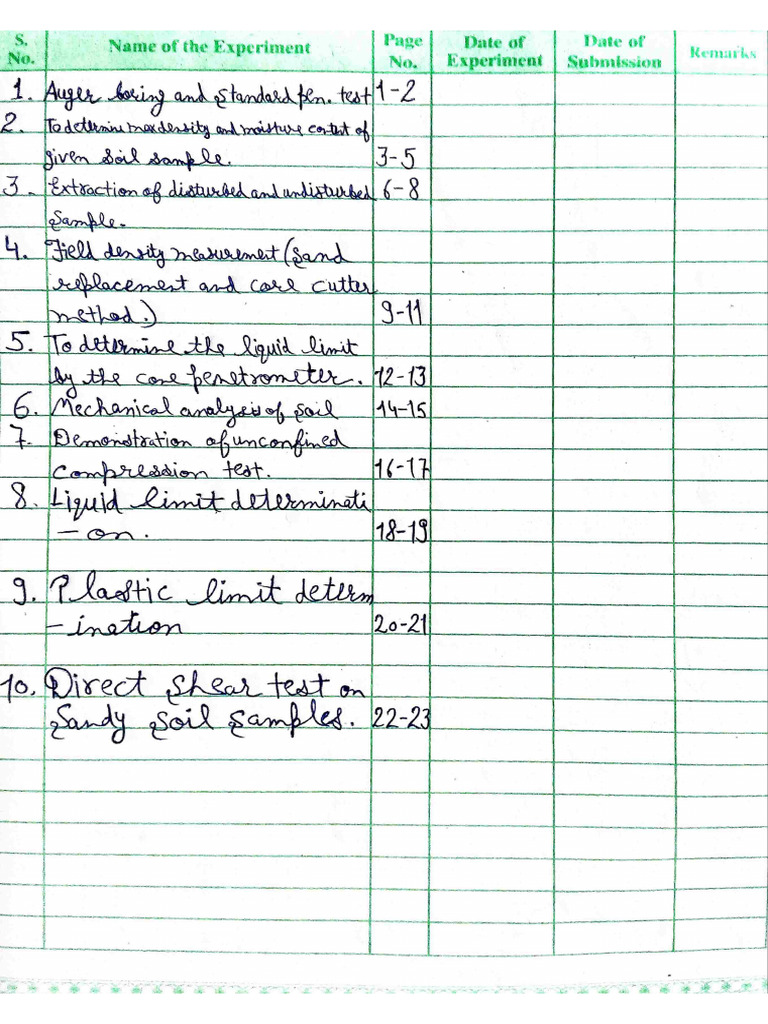 S. No. Name of the Experiment Page No. Date of Experiment Date of Submission Remarks
1. Auger boring and Standard pen. test 1-2
2. To determine max density and moisture content of
given soil sample. 3-5
3. Extraction of disturbed and undisturbed 6-8
Sample.
4. Field density measurement (Sand
replacement and core cutter
method.) 9-11
5. To determine the liquid limit
by the cone penetrometer. 12-13
6. Mechanical analysis of soil 14-15
7. Demonstration of unconfined
compression test. 16-17
8. Liquid limit determinati
-on. 18-19
9. Plastic limit determ
-ination 20-21
10. Direct Shear test on
Sandy Soil Samples. 22-23